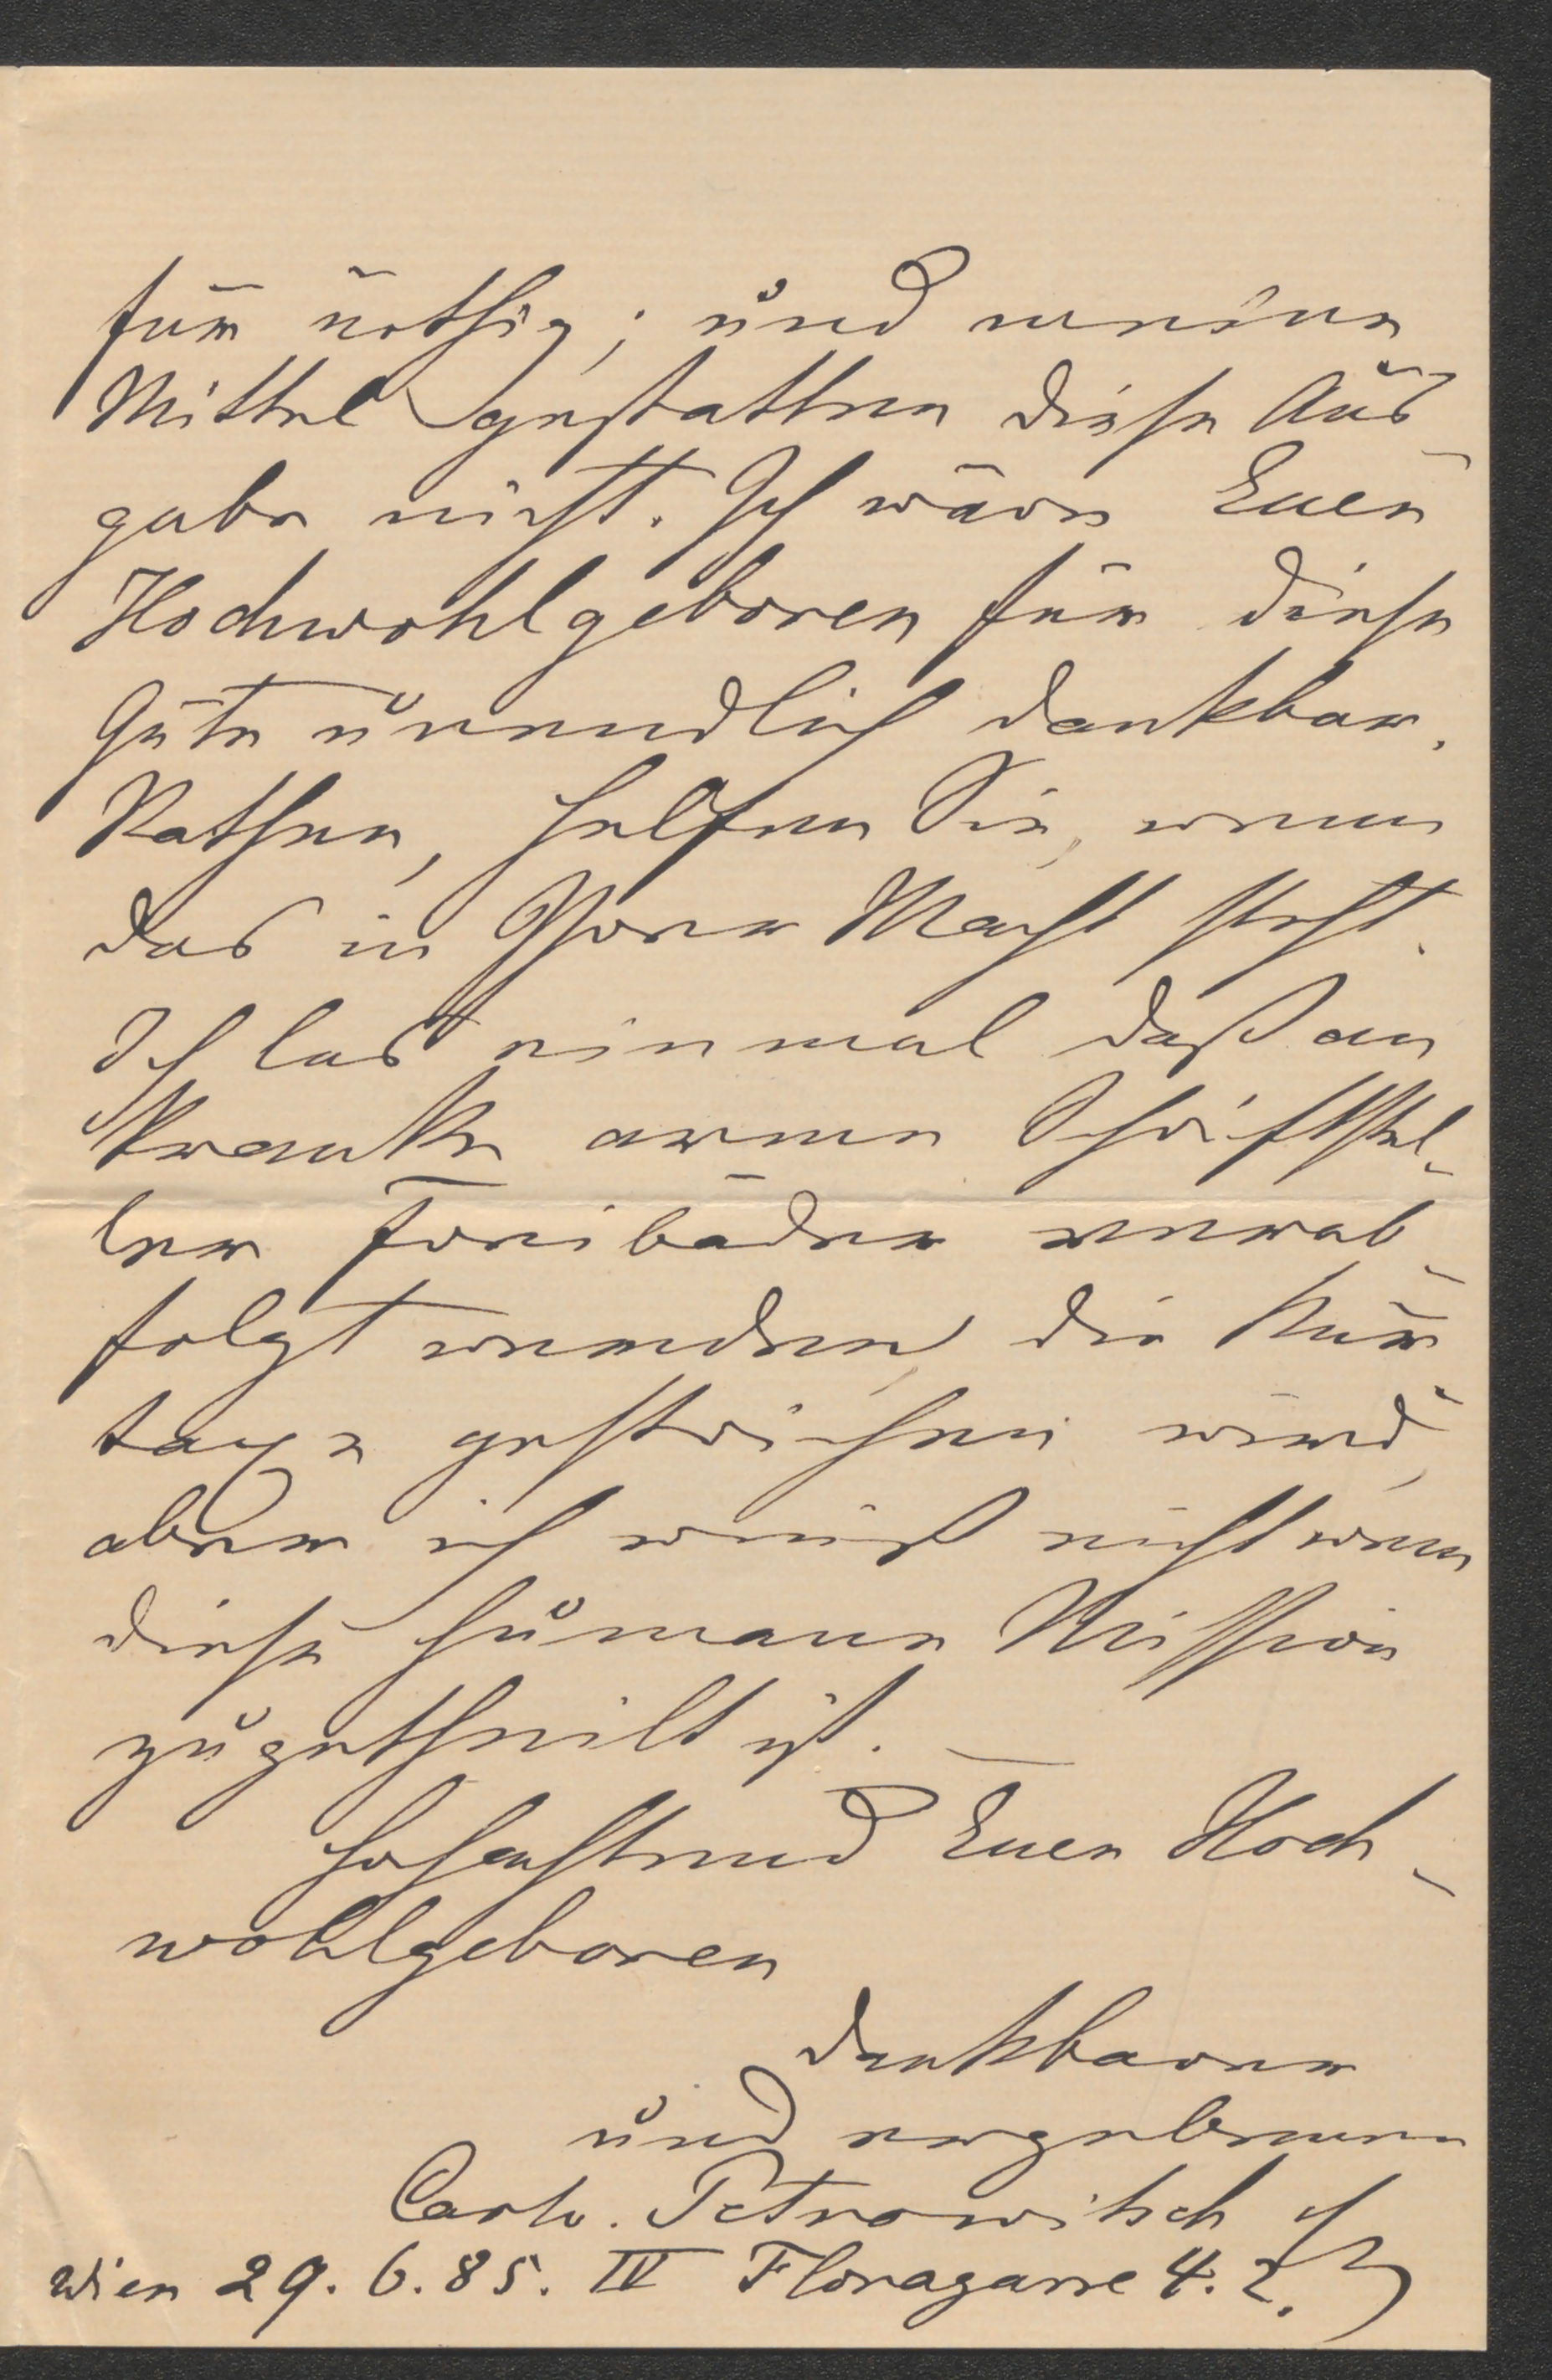 für nöthig; und meine
Mittel gestatten diese Aus¬
gabe nicht. Ich wäre Euer
Hochwohlgeboren für diese
Güte unendlich dankbar.
Rathen, helfen Sie, wenn
das in Ihrer Macht steht.
Ich las einmal daß an
kranke arme Schriftstel¬
ler Freibäder verab¬
folgt werden, die Kur¬
taxe gestrichen wird,
aber ich weiß nicht wem
diese humane Mission
zugetheilt ist. —
Hochachtend Euer Hoch¬
wohlgeboren
dankbarer
und ergebener
Carlo. Petrowitsch
Wien 29. 6. 85. IV Floragasse 4. 2.